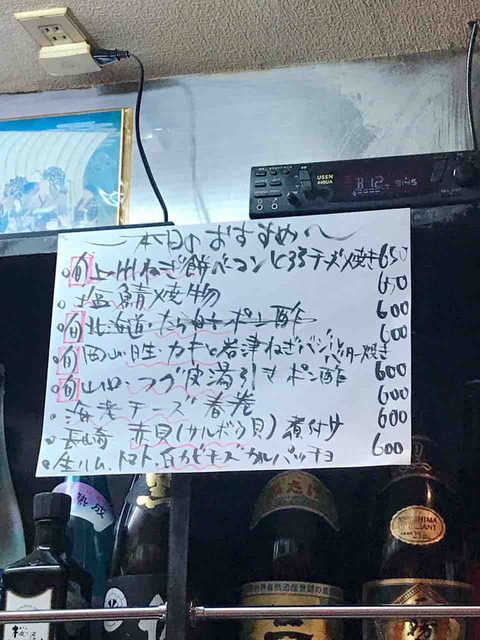 USEN
440UA
B 12 9145
〜本日のおすすめ〜
旬 上州ねぎ餅ベーコンとろろチーズ焼き 650
塩鯖焼物 650
旬 北海道・たら白子ポン酢 600
旬 岡山・日生・カキと岩津ねぎバター焼き 600
旬 山口・フグ皮湯引きポン酢 600
海老チーズ春巻 600
長崎 赤貝(サルボウ貝)煮付け 600
生ハム、トマト、白カビチーズカルパッチョ 600
熟成
世界自然遺産登録の島